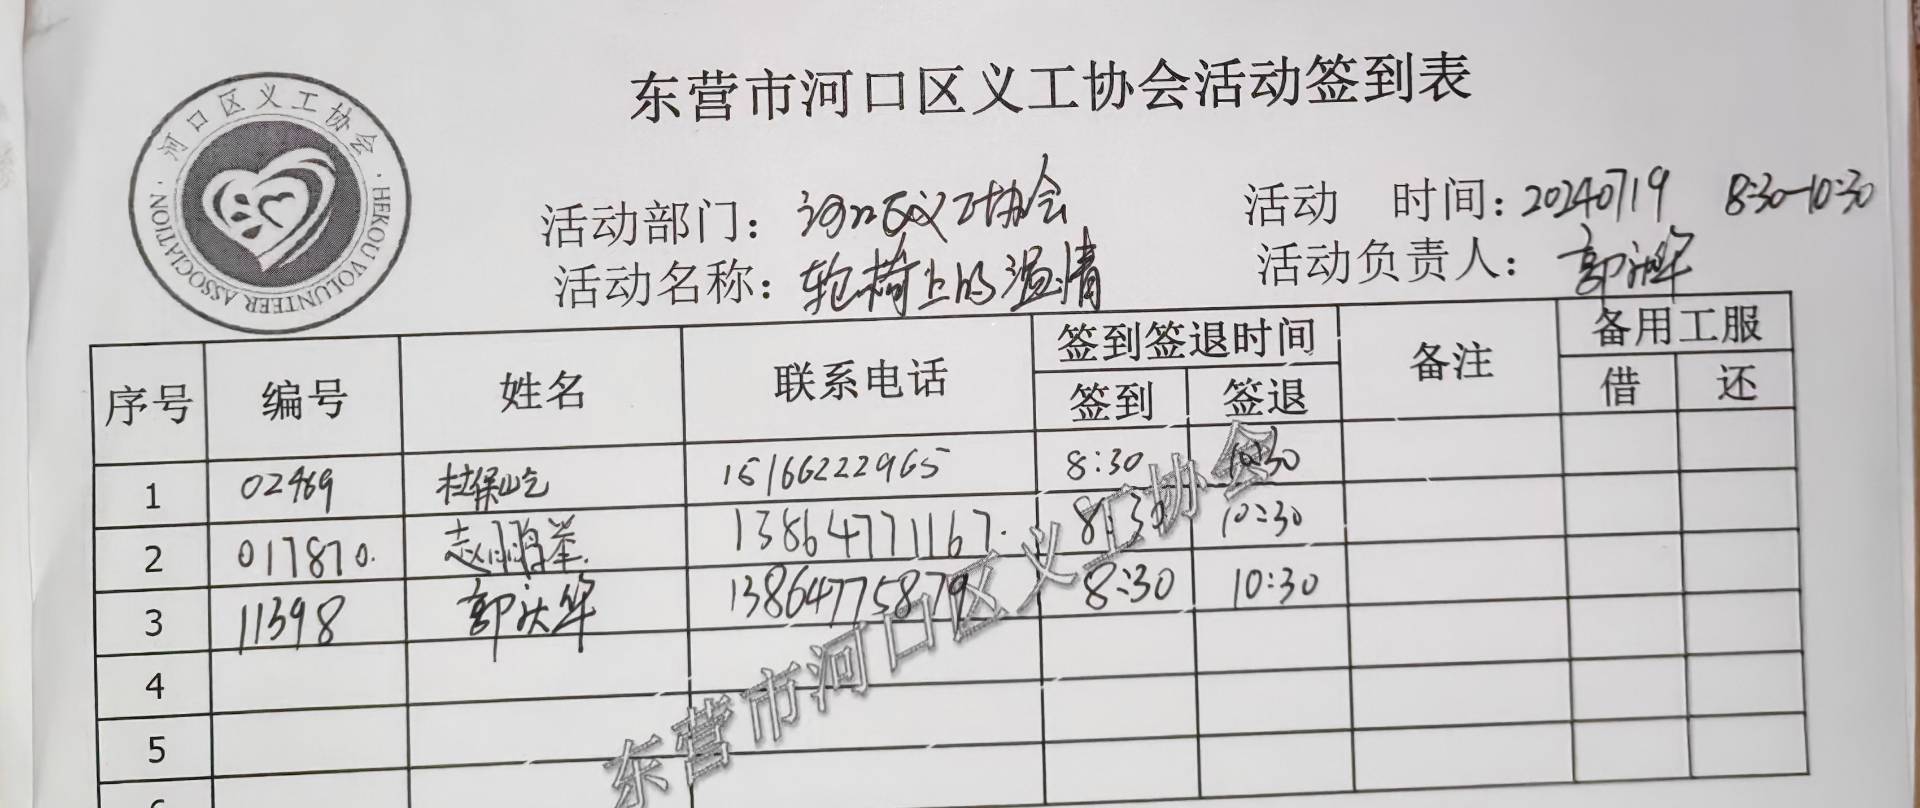 东营市河口区义工协会活动签到表
河口区义工协会
HEKOU VOLUNTEER ASSOCIATION
活动部门：河口区义工协会 活动 时间：20240719 8:30-10:30
活动名称：轮椅上的温情 活动负责人：郭
序号 编号 姓名 联系电话 签到签退时间 备注 备用工服
签到 签退 借 还
1 02469 杜保屹 15166222965 8:30 10:30
2 017870. 赵鹏举. 13864771167. 8:30 10:30
3 11398 郭 13864775879 8:30 10:30
4
5
6
东营市河口区义工协会